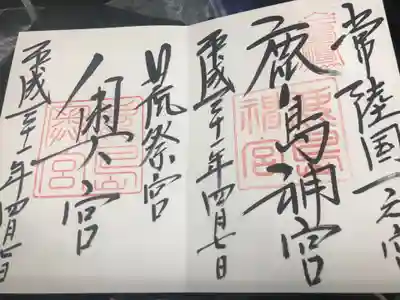 常陸国一之宮
鹿島神宮
鹿島神宮
平成三十一年四月七日
荒祭宮
奥宮
平成三十一年四月七日